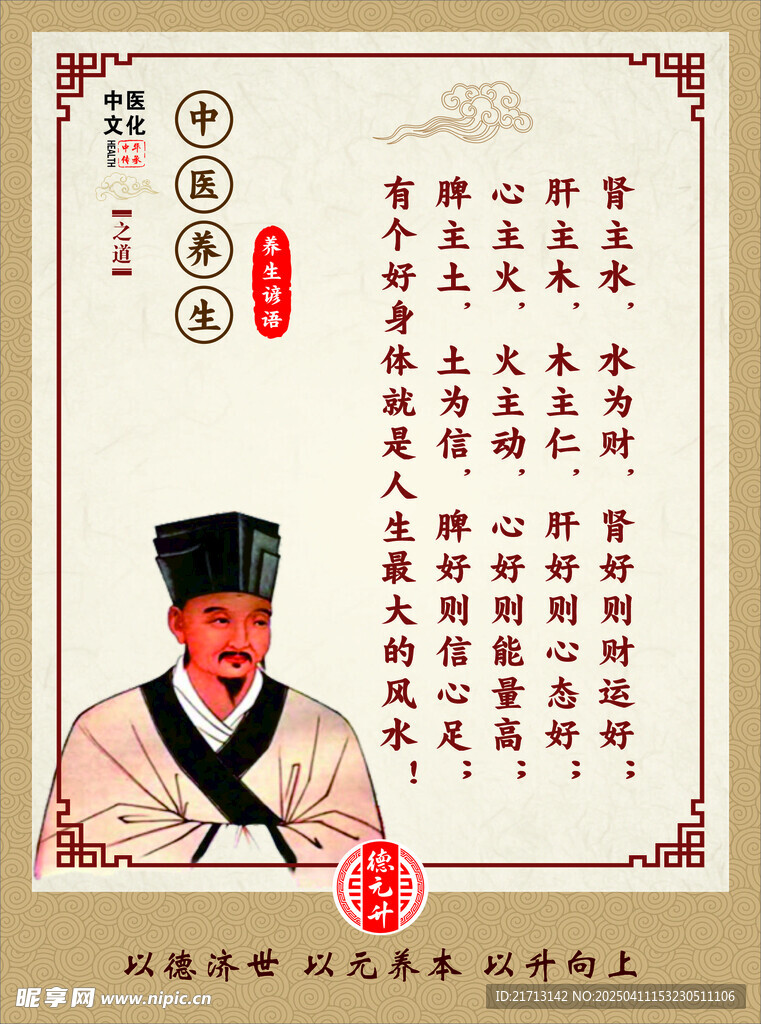 中医
文化
HEALTH
中华
传承
之道
中医养生
养生谚语
肾主水，水为财，肾好则财运好；
肝主木，木主仁，肝好则心态好；
心主火，火主动，心好则能量高；
脾主土，土为信，脾好则信心足；
有个好身体就是人生最大的风水！
德元升
以德济世 以元养本 以升向上
昵享网 www.nipic.cn
ID:21713142 NO:20250411153230511106